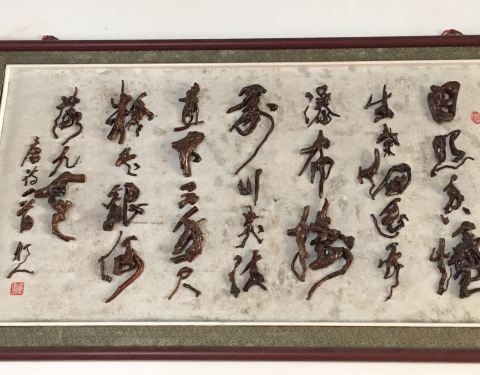 日照香爐
生紫烟遥看
瀑布掛
前川飛流
直下三千尺
疑是銀河
落九天
唐詩一首